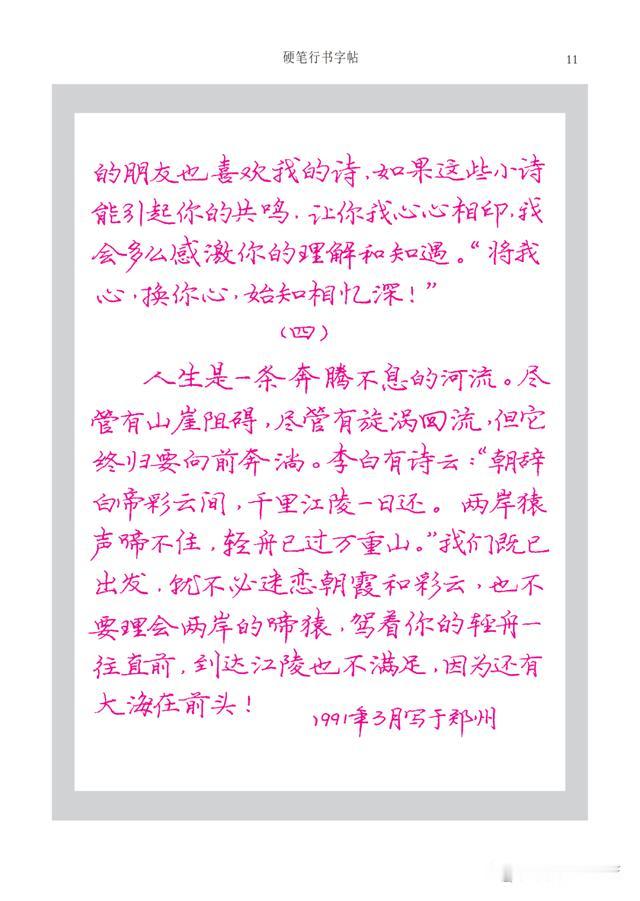 硬笔行书字帖
11
的朋友也喜欢我的诗，如果这些小诗
能引起你的共鸣，让你我心心相印，我
会多么感激你的理解和知遇。“将我
心，换你心，始知相忆深！”
（四）
人生是一条奔腾不息的河流。尽
管有山崖阻碍，尽管有旋涡回流，但它
终归要向前奔淌。李白有诗云：“朝辞
白帝彩云间，千里江陵一日还。两岸猿
声啼不住，轻舟已过万重山。”我们既已
出发，就不必迷恋朝霞和彩云，也不
要理会两岸的啼猿，驾着你的轻舟一
往直前，到达江陵也不满足，因为还有
大海在前头！
1991年3月写于郑州